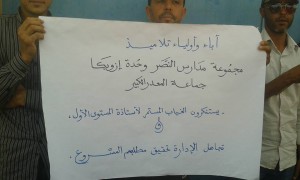 آباء وأولياء تلاميذ
مجموعة مدارس النصر وحدة إزويكا
جماعة العدر الكبير
يستنكرون الغياب المستمر لأستاذة المستوى الأول.
و
تجاهل الإدارة تحقيق مطلبهم المشروع.